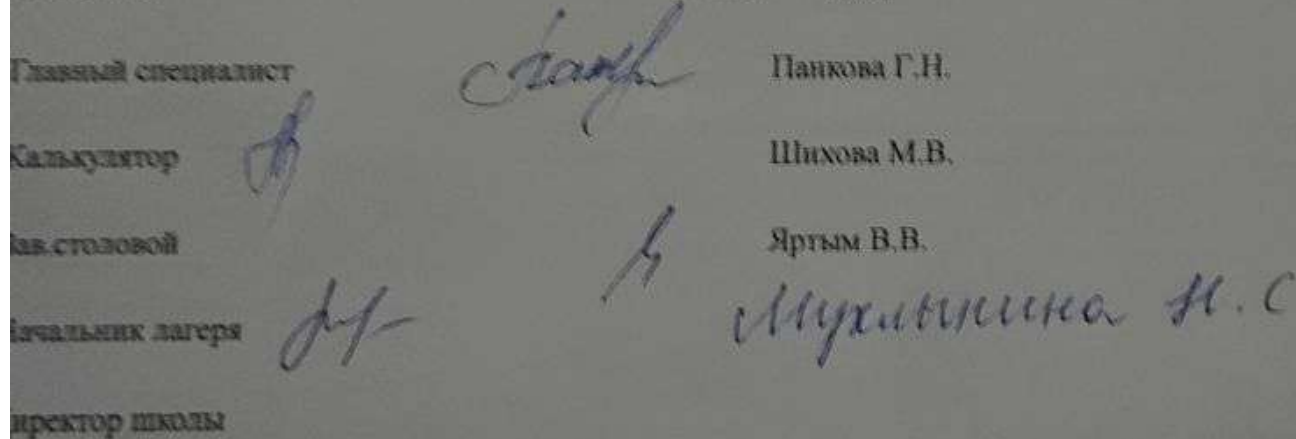 Главный специалист Панкова Г.Н.
Калькулятор Шихова М.В.
Зав.столовой Яртым В.В.
Начальник лагеря Мухлынина Н.С
Директор школы